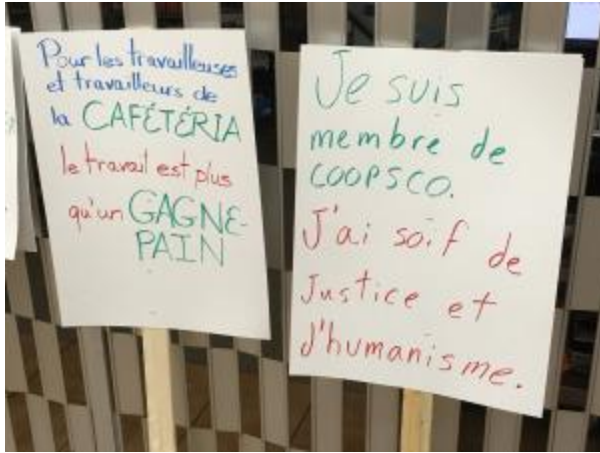 Pour les travailleuses
et travailleurs de
la CAFÉTÉRIA
le travail est plus
qu'un GAGNE-
PAIN
Je suis
membre de
COOPSCO.
J'ai soif de
Justice et
d'humanisme.